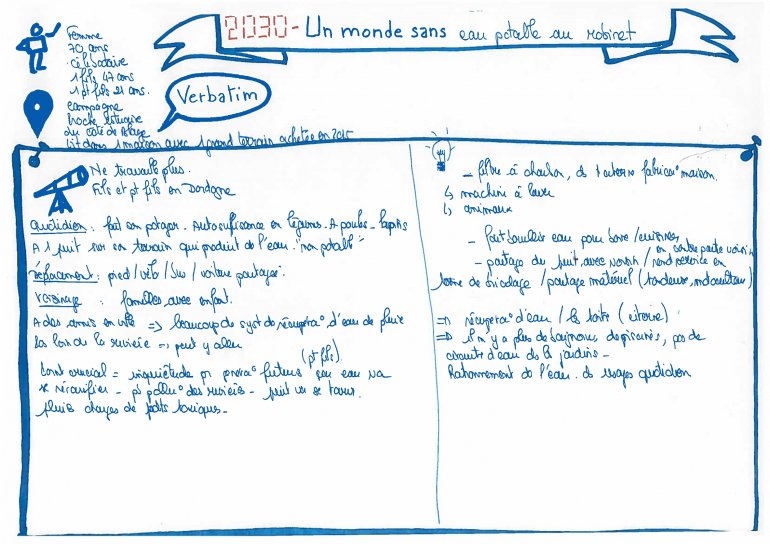 2030 - Un monde sans eau potable au robinet
Femme
70 ans
célibataire
1 fils 47 ans
1 pt fils 21 ans.
campagne
proche estuaire
du côté de
Vit dans 1 maison avec 1 grand terrain achetée en 2015
Verbatim
Ne travaille plus.
Fils et pt fils en Dordogne
Quotidien : fait son potager. Autosuffisance en légumes. A poules - lapins
A 1 puit sur son terrain qui produit de l'eau "non potable"
Déplacement : pied / vélo / bus / voiture partagée.
Voisinage : familles avec enfant.
A des amis en ville => beaucoup de syst de récupérat° d'eau de pluie
pas loin de la rivière => peut y aller
(pt fils)
Point crucial = inquiétude pr générat° future car eau va
se raréfier - pb pollut° des rivières - puit va se tarir.
pluies chargées de toxiques -
- filtre à charbon, de fabricat° maison.
↳ machine à laver
↳ animaux
- faut bouillir eau pour boire / cuisiner,
- partage du puit avec voisin / rend service en en contre partie voisin
terme de bricolage / partage matériel (tondeuse, motoculteur)
=> récupérat° d'eau / les toits (citerne)
=> il n'y a plus de baignoires de piscines, pas de
d'eau de les jardins -
Rationnement de l'eau. des usages quotidien